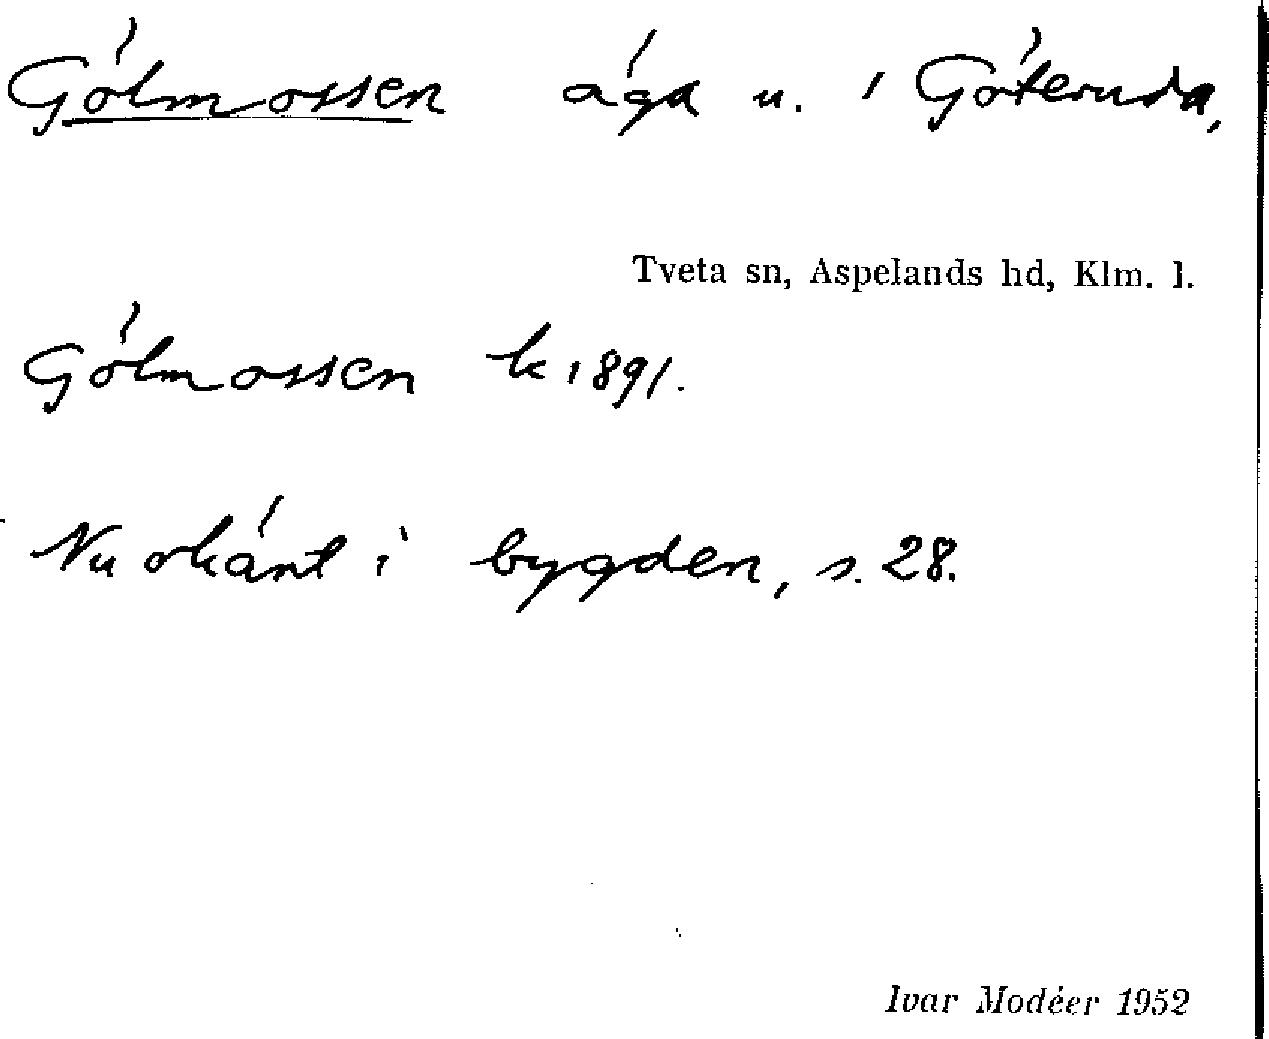 Gölmossen äga u. 1 Göteruda,
Tveta sn, Aspelands hd, Klm. l.
Gölmossen k 1891.
Nu okänt i bygden, s. 28.
Ivar Modéer 1952